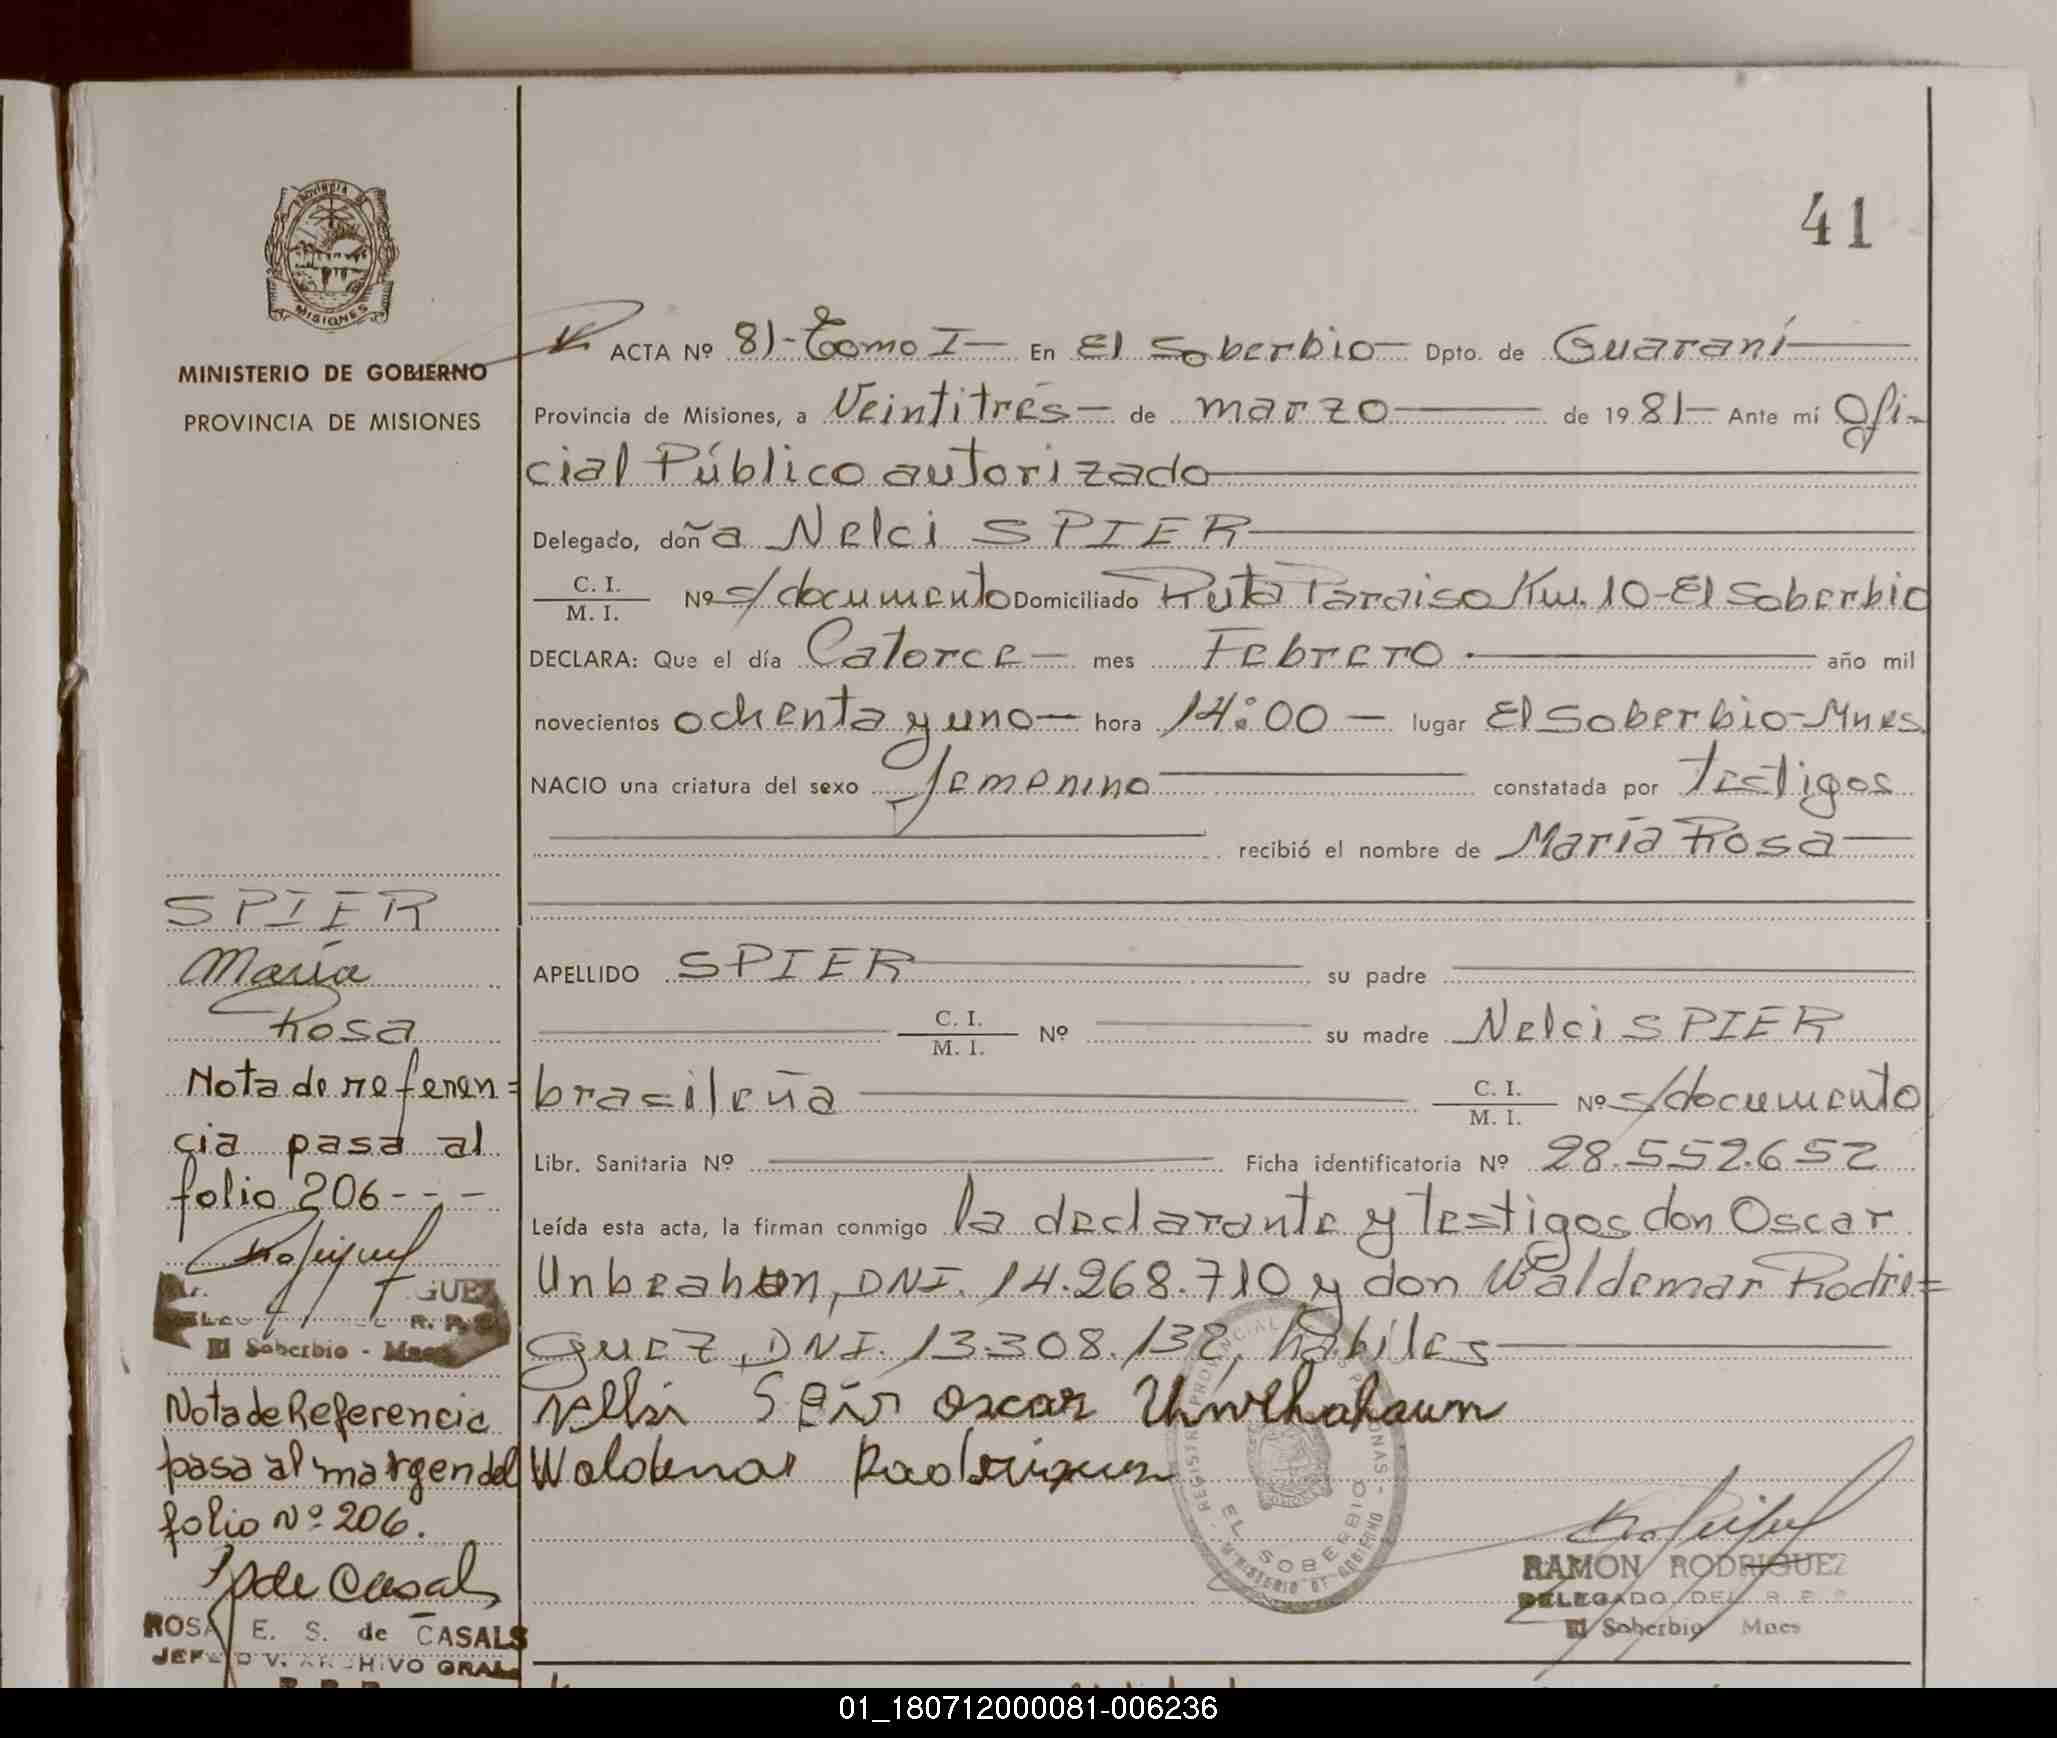 41
Provincia
MISIONES
MINISTERIO DE GOBIERNO
PROVINCIA DE MISIONES
ACTA Nº 81- Tomo I — En El Soberbio — Dpto. de Guaraní —
Provincia de Misiones, a Veintitrés — de marzo — de 1981 — Ante mí Ofi-
cial Público autorizado —
Delegado, doña Nelci SPIER —
C. I.
M. I. Nº s/documento Domiciliado Ruta Paraiso Km. 10-El Soberbio
DECLARA: Que el día Catorce — mes Febrero — año mil
novecientos ochenta y uno — hora 14:00 — lugar El Soberbio-Mnes.
NACIO una criatura del sexo femenino — constatada por testigos
— recibió el nombre de María Rosa —
APELLIDO SPIER — su padre —
— C. I.
M. I. Nº — su madre Nelci SPIER
brasileña — C. I.
M. I. Nº s/documento
Libr. Sanitaria Nº — Ficha identificatoria Nº 28.552.652
Leída esta acta, la firman conmigo la declarante y testigos don Oscar
Unbeahun, DNI. 14.268.710 y don Waldemar Rodri=
guez, DNI. 13.308.132, hábiles —
Oscar
REGISTRO PROVINCIAL PERSONAS
EL SOBERBIO
MINISTERIO DE GOBIERNO
RAMON RODRIGUEZ
DELEGADO DEL R. P.
El Soberbio Mnes
SPIER
María
Rosa
Nota de referen=
cia pasa al
folio 206 - - -
GUEZ
R. P.
El Soberbio - Mnes
Nota de Referencia
pasa al margen del
folio Nº 206.
de Casals
ROSA E. S. de CASALS
JEFE DIV. ARCHIVO GRAL.
01_180712000081-006236